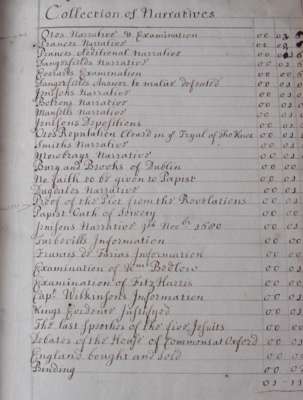 Collection of Narratives
Otes Narrative & Examination 00 03
Prances Narrative 00 02
Prances Additional Narrative 00 01
Dangerfields Narrative 00 02
Everards Examination 00 01
Dangerfields Answer to malice defeated 00 01
Jenisons Narrative 00 01
Boltrons Narrative 00 01
Mansells Narrative 00 01
Jenisons Depositions 00 01
Otes Reputation Cleard in ye Tryal of the Knox 00 01
Smiths Narrative 00 01
Mowbrays Narrative 00 01
Bury and Brooks of Dublin 00 00
No faith to be given to Papist 00 01
Dugdales Narrative 00 01
Proof of the Plot from the Revelations 00 01
Papist Oath of Secrecy 00 00
Jenisons Narrative 9th Nov 1680 00 01
Turbevills Information 00 00
Francis de Farias Information 00 00
Examination of Wm Bedlow 00 00
Examination of Fitz Harris 00 00
Capt Wilkinsons Information 00 00
Kings Evidence Justifyed 00 00
The last Speeches of the five Jesuits 00 00
Debates of the House of Commons at Oxford 00 01
England bought and sold 00 00
Binding 00 01
01 11